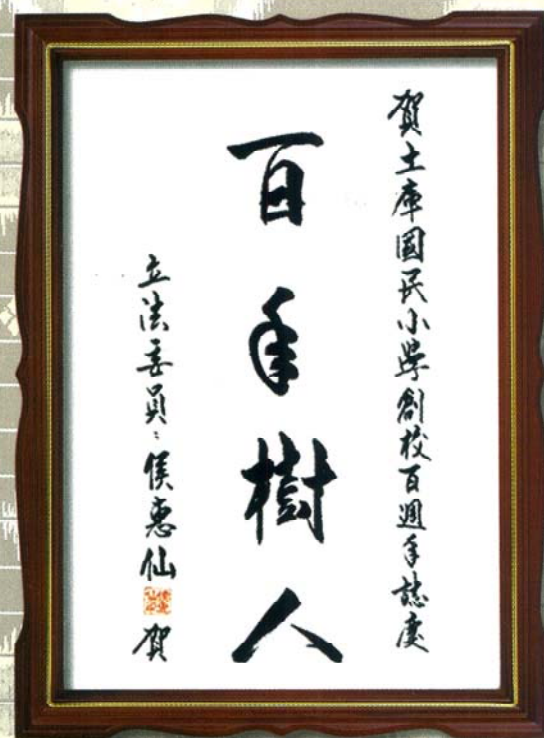 賀土庫國民小學創校百週年誌慶
百年樹人
立法委員：侯惠仙 賀